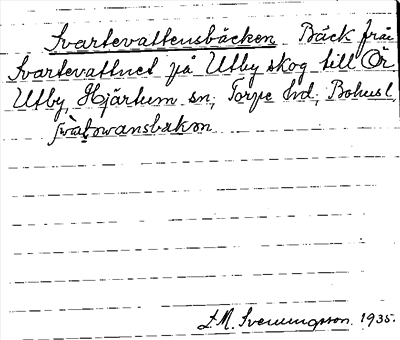 Svartevattensbäcken Bäck från
Svartevattnet på Utby skog till Ör
Utby, Hjärtum sn, Torpe hd, Bohusl.
L.M. Svenungsson 1935.